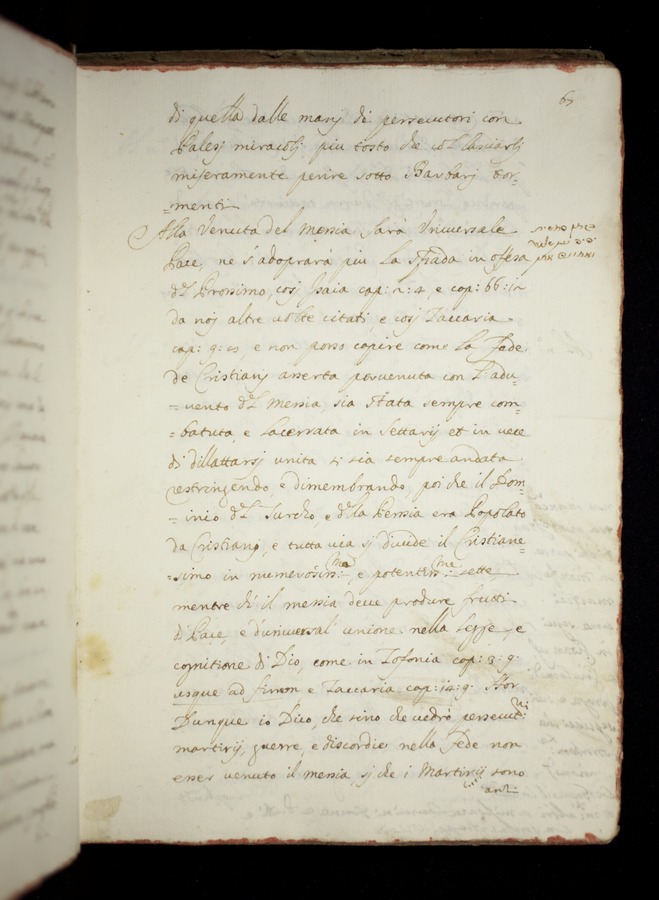 65
di quella dalle manj di persecutori con
Palesj miracolj piu tosto che col lasciarlj
miseramente perire sotto Barbarj tor=
=menti
Alla Venuta del messia sarà Vniuersale
Pace, ne s'adoprarà piu la spada in ofesa
del Prossimo, cosj Isaia cap: 2: 4, e cap: 66: 12
da noj altre uolte citati, e cosj Zaccaria
cap: 9: 10, e non posso capire come la fede
de Cristianj asserta peruenuta con l'adu=
=uento del messia sia stata sempre com=
=batuta, e lacerrata in settarij et in uece
di dillattarsj unita si sia sempre andata
restringendo, e dimembrando, poi che il Dom=
=inio del Turcho, e della Persia era Popolato
da Cristianj, e tutta uia sj diuide il Cristiane=
=simo in numerosiss:me, e potentiss:me sette
mentre ch'il messia deue produre frutti
di Pace, e d'uniuersal unione nella legge, e
cognitione di Dio, come in Zofonia cap: 3: 9:
usque ad finem e Zaccaria cap: 14: 9: Hor
Dunque io Dico, che sino che uedrò persecut:ni
martirij, guerre, e discordie nella fede non
esser venuto il messia, sj che i Martirij sono